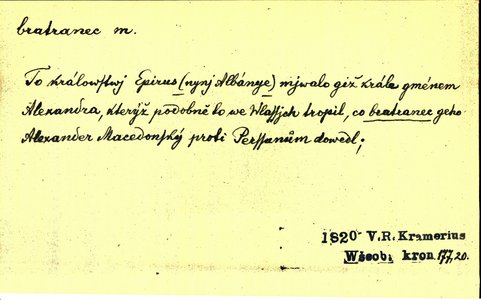 bratranec m.
To králowstwj Epirus (nynj Albánye) mjwalo giž krále gménem
Alexandra, kterýž podobně to we Wlassjch tropil, co bratranec geho
Alexander Macedonský proti Perssanům dowedl;
1820 V.R. Kramerius
Wšeob. kron. 177, 20.